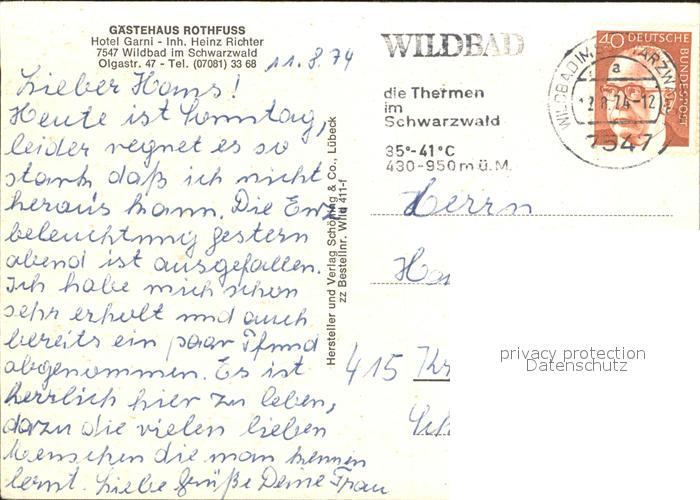 GÄSTEHAUS ROTHFUSS
Hotel Garni - Inh. Heinz Richter
7547 Wildbad im Schwarzwald
Olgastr. 47 - Tel. (07081) 33 68
11.8.74
Lieber Hans!
Heute ist Sonntag,
leider regnet es so
stark daß ich nicht
heraus kann. Die Enz
beleuchtung gestern
abend ist ausgefallen.
Ich habe mich schon
sehr erholt und auch
bereits ein paar Pfund
abgenommen. Es ist
herrlich hier zu leben,
dazu die vielen lieben
Menschen die man kennen
lernt. Liebe Grüße Deine Frau
Hersteller und Verlag Schöning & Co., Lübeck
zz Bestellnr. Wild 411-f
WILDBAD
die Thermen
im
Schwarzwald
35°-41°C
430-950m ü.M.
40 DEUTSCHE BUNDESPOST
WILDBAD IM SCHWARZWALD
a
12.8.74-12
7547
Herrn
415 Kr
privacy protection
Datenschutz